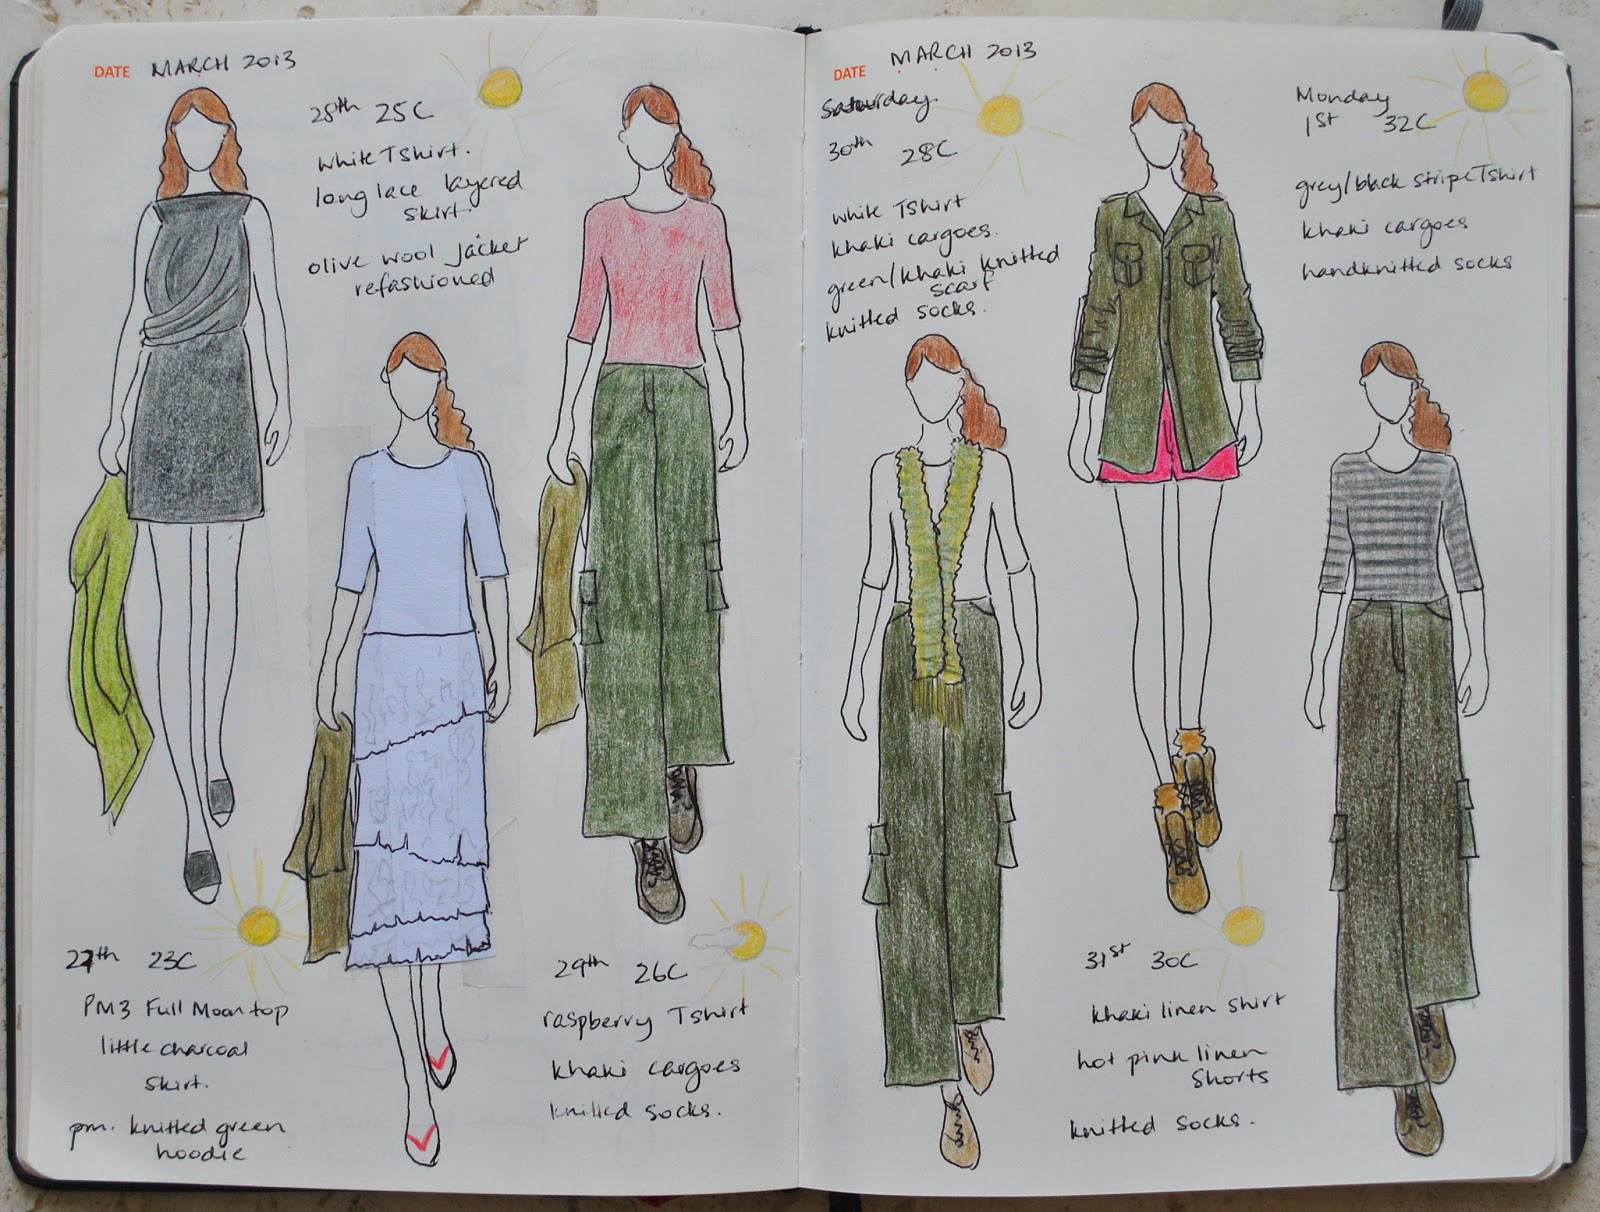 DATE MARCH 2013
28th 25C
white T shirt.
long lace layered
skirt.
olive wool jacket
refashioned
27th 23C
PM3 Full Moon top
little charcoal
skirt.
pm. knitted green
hoodie
29th 26C
raspberry T shirt
khaki cargoes
knitted socks.
DATE MARCH 2013
Saturday.
30th 28C
white TShirt
khaki cargoes.
green/khaki knitted
scarf
knitted socks.
31st 30C
khaki linen shirt
hot pink linen
shorts
knitted socks.
Monday
1st 32C
grey/black stripe Tshirt
khaki cargoes
handknitted socks